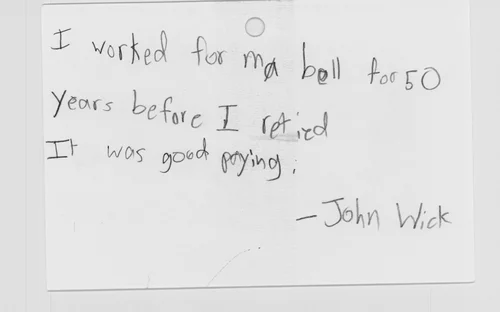 I worked for ma bell for 50
years before I retird
It was good paying.
- John Wick